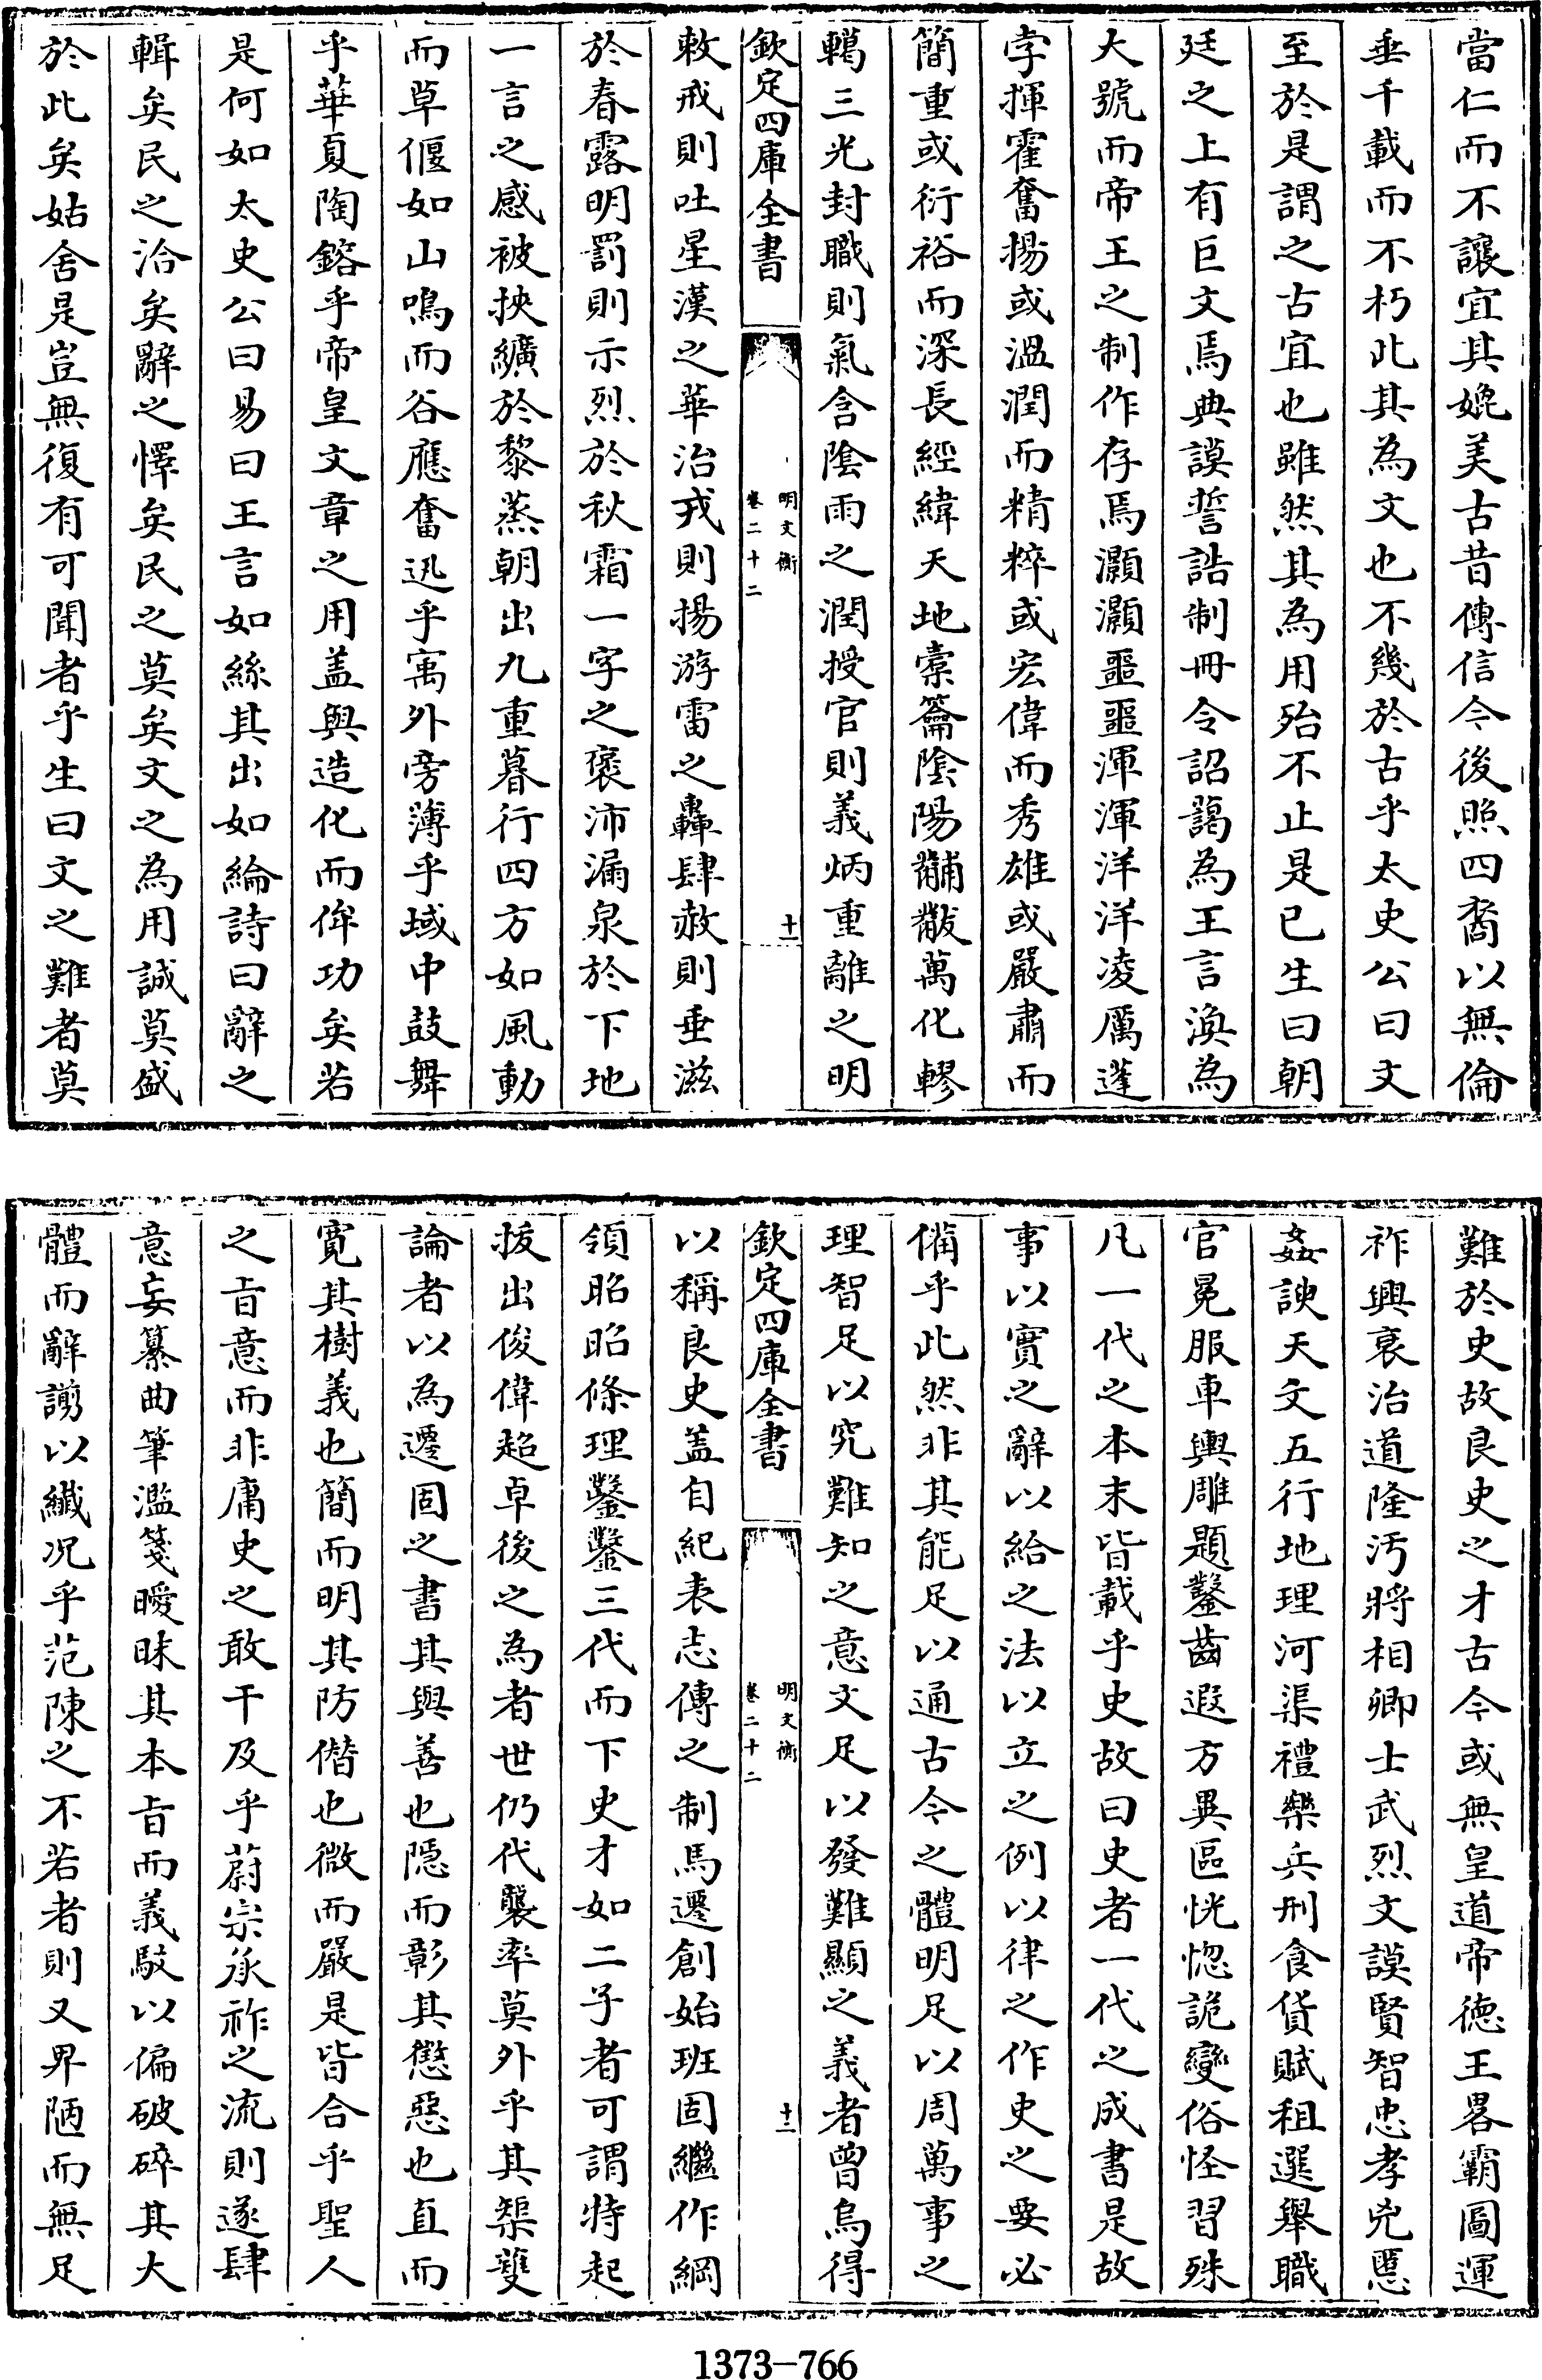 當仁而不讓宜其媲美古昔傳信今後照四裔以無倫
垂千載而不朽此其為文也不幾於古乎太史公曰文
至於是謂之古宜也雖然其為用殆不止是已生曰朝
廷之上有巨文焉典謨誓誥制冊令詔謁為王言渙為
大號而帝王之制作存焉灝灝噩噩渾渾洋洋凌厲蓬
孛揮霍奮揚或溫潤而精粹或宏偉而秀雄或嚴肅而
簡重或衍裕而深長經緯天地橐籥陰陽黼黻萬化轇
轕三光封職則氣含陰雨之潤授官則義炳重離之明
欽定四庫全書
明文衡
卷二十二
十一
敕戒則吐星漢之華治戎則揚游雷之轟肆赦則垂滋
於春露明罰則示烈於秋霜一字之褒沛漏泉於下地
一言之感被挾纊於黎蒸朝出九重暮行四方如風動
而草偃如山鳴而谷應奮迅乎寓外旁薄乎域中鼓舞
乎華夏陶鎔乎帝皇文章之用盖與造化而侔功矣若
是何如太史公曰易曰王言如絲其出如綸詩曰辭之
輯矣民之洽矣辭之懌矣民之莫矣文之為用誠莫盛
於此矣姑舍是豈無復有可聞者乎生曰文之難者莫
難於史故良史之才古今或無皇道帝徳王畧霸圖運
祚興衰治道隆汚將相卿士武烈文謨賢智忠孝兇慝
姦諛天文五行地理河渠禮樂兵刑食貨賦租選舉職
官冕服車輿雕題鑿齒遐方異區恍惚詭變俗怪習殊
凡一代之本末皆載乎史故曰史者一代之成書是故
事以實之辭以給之法以立之例以律之作史之要必
備乎此然非其能足以通古今之體明足以周萬事之
理智足以究難知之意文足以發難顯之義者曾烏得
欽定四庫全書
明文衡
卷二十二
十二
以稱良史盖自紀表志傳之制馬遷創始班固繼作綱
領昭昭條理鑿鑿三代而下史才如二子者可謂特起
拔出俊偉超卓後之為者世仍代襲率莫外乎其榘矱
論者以為遷固之書其與善也隱而彰其懲惡也直而
寛其樹義也簡而明其防僭也微而嚴是皆合乎聖人
之旨意而非庸史之敢干及乎蔚宗承祚之流則遂肆
意妄纂曲筆濫箋曖昧其本旨而義駁以偏破碎其大
體而辭謭以纖况乎范陳之不若者則又畀陋而無足
1373-766